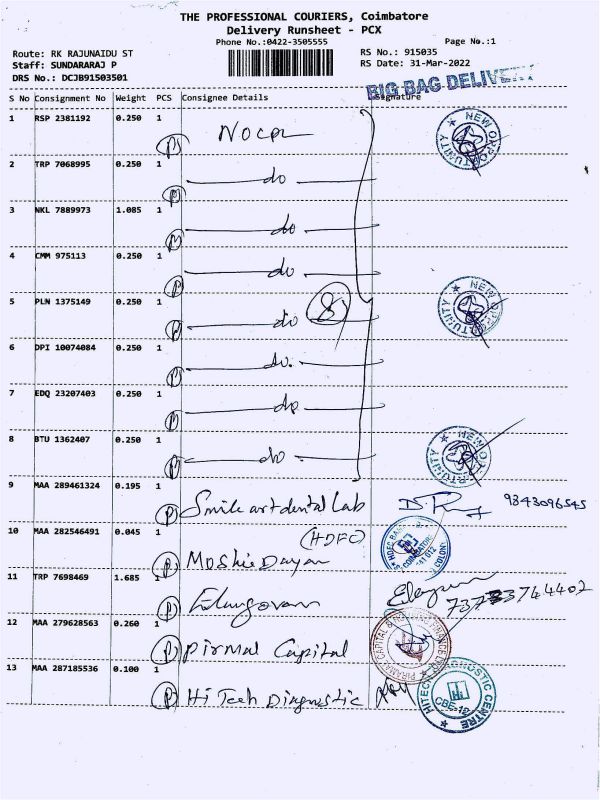 THE PROFESSIONAL COURIERS, Coimbatore
Delivery Runsheet - PCX
Phone No.:0422-3505555
Page No.:1
Route: RK RAJUNAIDU ST
RS No.: 915035
Staff: SUNDARARAJ P
RS Date: 31-Mar-2022
DRS No.: DCJB91503501
BIG BAG DELIVERY
S No Consignment No Weight PCS Consignee Details Signature
1 RSP 2381192 0.250 1
NEW OPPORTUNITY
2 TRP 7068995 0.250 1
do
3 NKL 7889973 1.085 1
do
4 CMM 975113 0.250 1
do
5 PLN 1375149 0.250 1
do 8
NEW OPPORTUNITY
6 DPI 10074084 0.250 1
do
7 EDQ 23207403 0.250 1
do
8 BTU 1362407 0.250 1
do
NEW OPPORTUNITY
9 MAA 289461324 0.195 1
Smile art dental Lab 9843096545
10 MAA 282546491 0.045 1
(HDFC)
Moshie Dayan
11 TRP 7698469 1.685 1
Elangovan
12 MAA 279628563 0.260 1
Pirmal Capital
13 MAA 287185536 0.100 1
Hi Tech Diagnostic
HITECH DIAGNOSTIC CENTRE
CBE-12